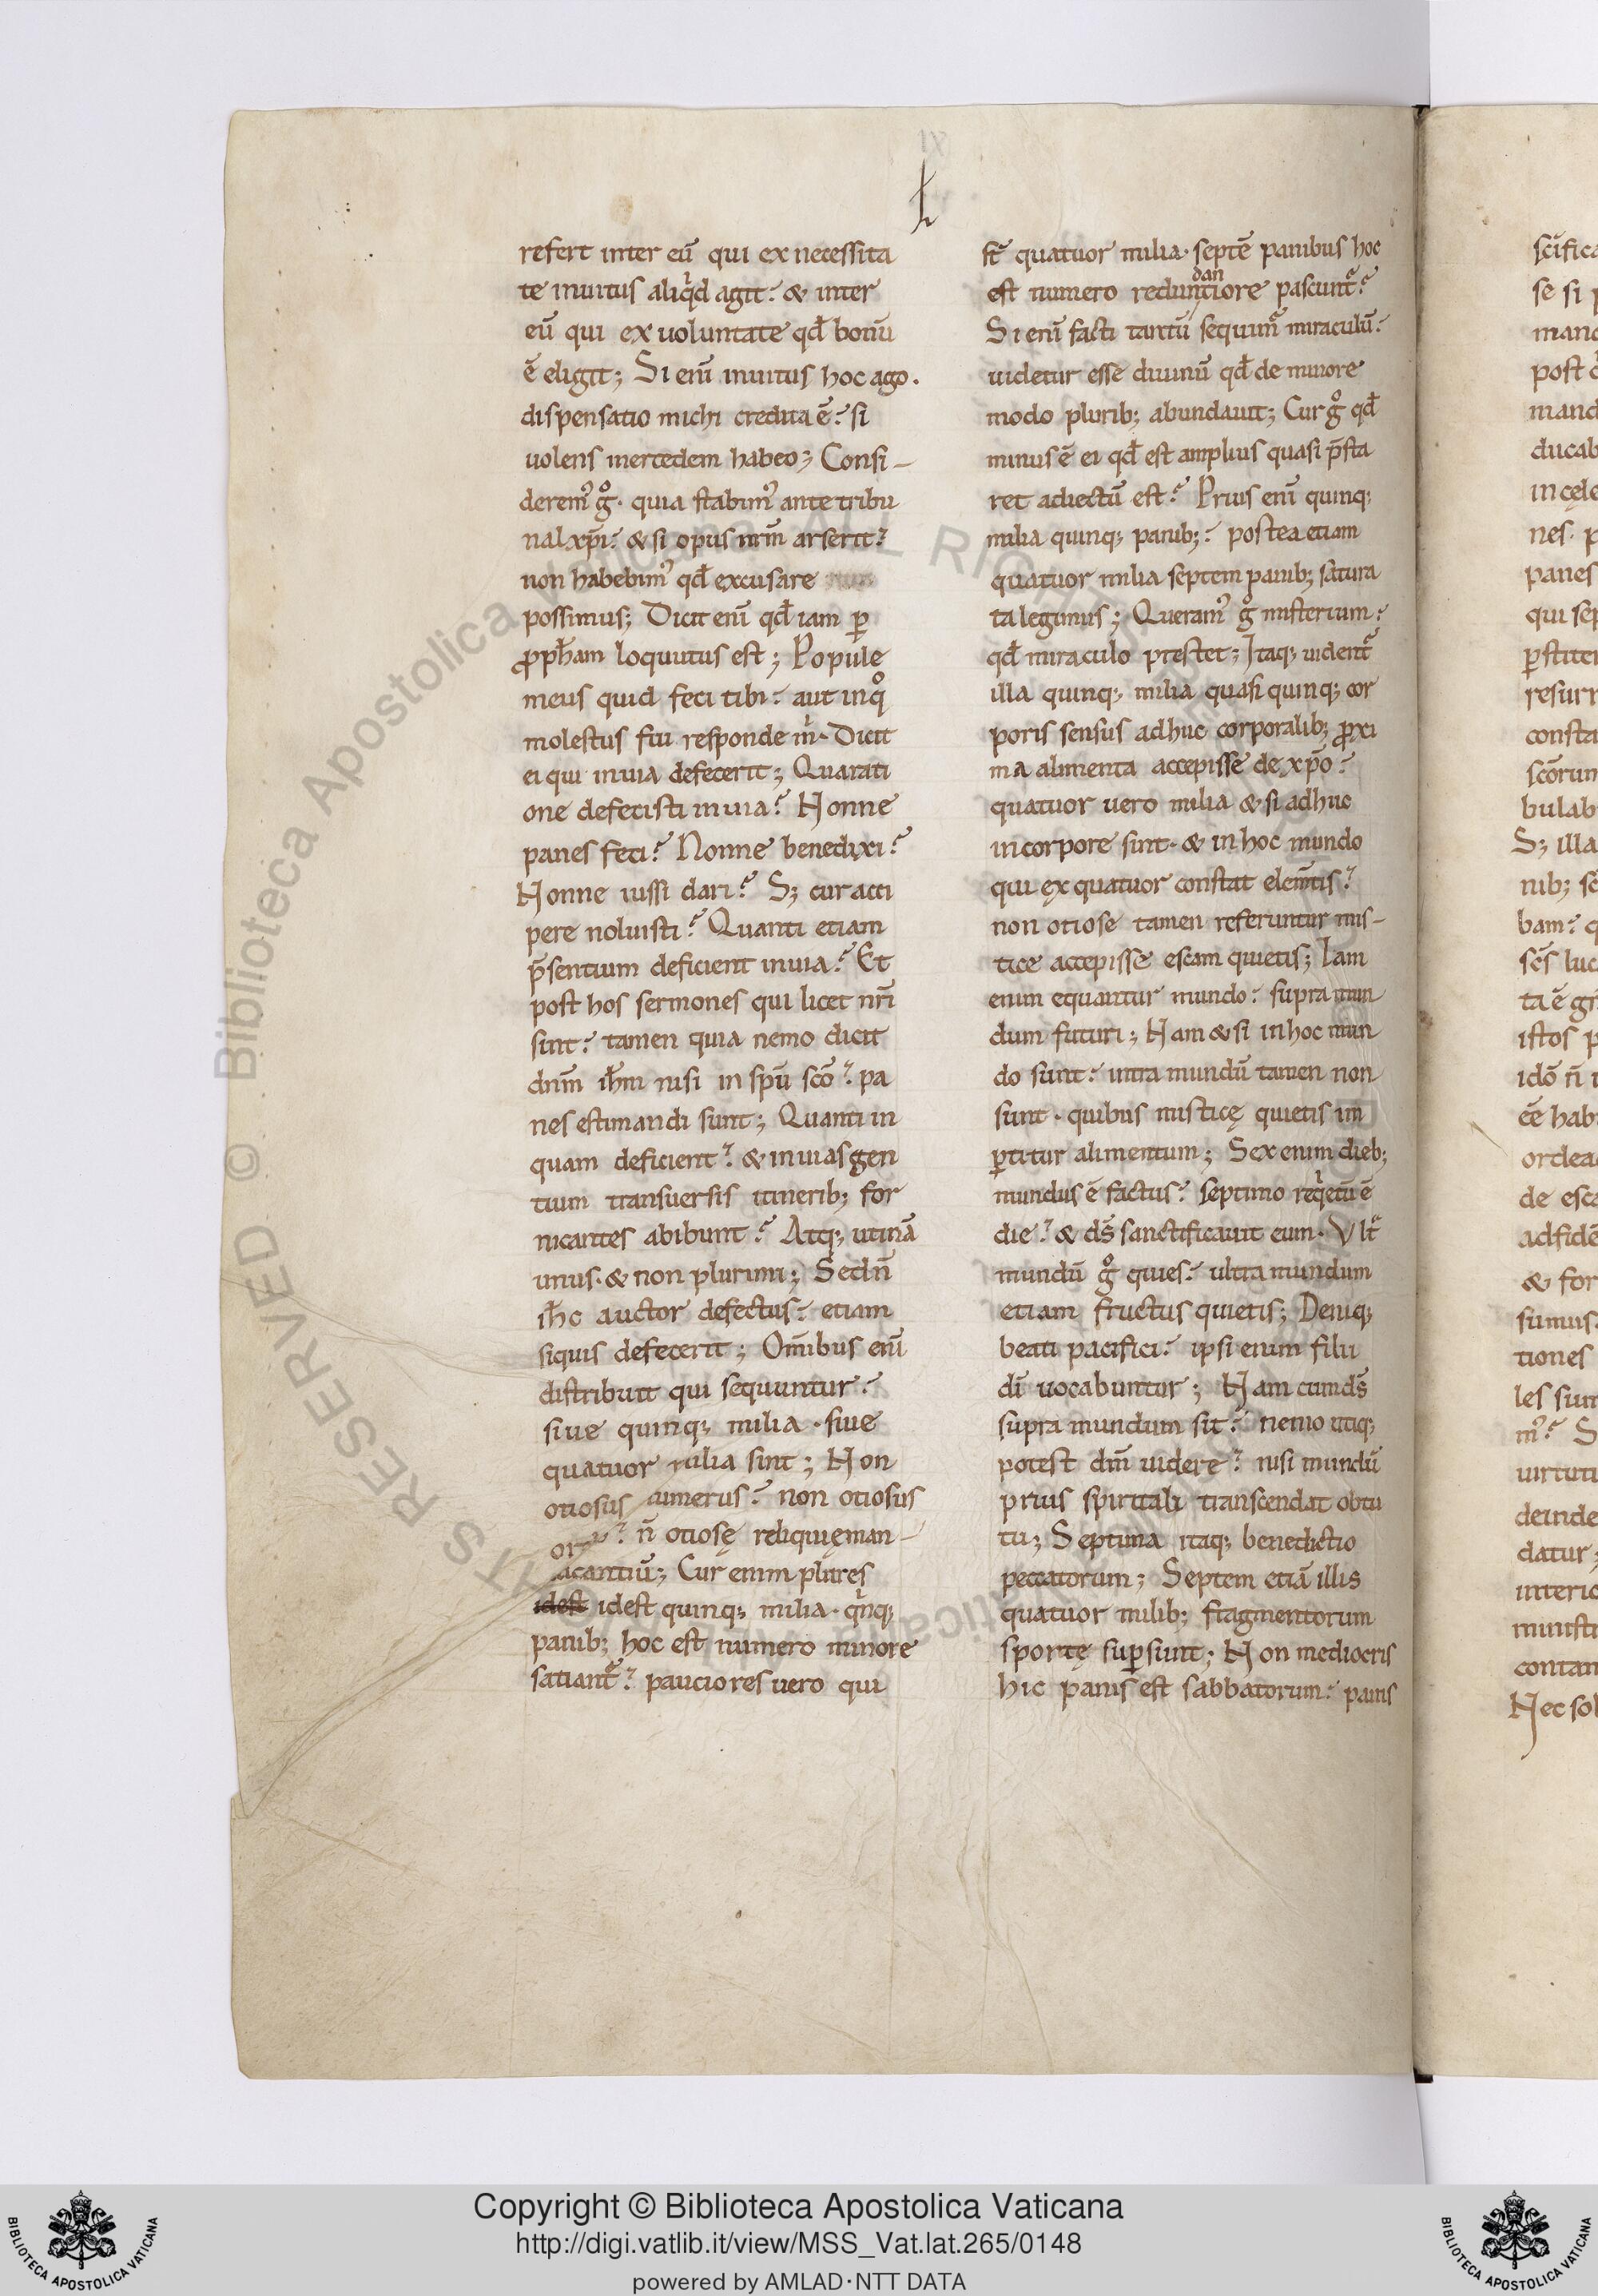 refert inter eū qui ex necessita
te inuitus aliqd agit? & inter
eū qui ex uoluntate qđ bonū
ē eligit; Si enī inuitus hoc ago.
dispensatio michi credita ē? si
uolens mercedem habeo; Consi-
deremꝰ gͦ. quia stabimꝰ ante tribu
nal xp̄i? & si opus nr̄m arserit?
non habebimꝰ qđ excusare
possimus; Dicit enī qđ iam ꝑ
ꝓph̄am loquutus est; Popule
meus quid feci tibi? aut inqͦ
molestus fui responde m. Dicit
ei qui inuia defecerit; Qua rati
one defecisti inuia? Nonne
panes feci? Nonne benedixi?
Nonne iussi dari? S; cur acci
pere noluisti? Quanti etiam
p̄sentium deficient inuia? Et
post hos sermones qui licet nr̄i
sint? tamen quia nemo dicit
dnm̄ ih̄m nisi in spū scō? pa
nes estimandi sunt; Quanti in
quam deficient? & inuias gen
tium transuersis itinerib; for
nicantes abibunt? Atq; utinā
unus. & non plurimi; Sed n̄
ih̄c auctor defectus? etiam
siquis defecerit; Om̄ibus enī
distribuit qui sequuntur?
siue quinq; milia. siue
quatuor milia sint; Non
otiosus numerus? non otiosus
n̄ otiosę reliquię man-
Cur enim plures
idest idest quinq; milia. qinq;
panib; hoc est numero minore
satiant᷑? pauciores uero qui
st̄ quatuor milia. septē panibus hoc
dan
est numero reduntiore pascunt᷑?
Si enī facti tantū sequim᷑ miraculū?
uidetur esse diuinū qđ de minore
modo plurib; abundauit; Cur gͦ qđ
minus ē ei qđ est amplius quasi p̄sta
ret adiectū est? Prius enī quinq;
milia quinq; panib;? postea etiam
quatuor milia septem panib; satura
ta legimus; Queramꝰ gͦ misterium?
qđ miraculo prestet; Itaq; uident᷑
illa quinq; milia quasi quinq; cor
poris sensus adhuc corporalib; ꝓxi
ma alimenta accepisse de xp̄o?
quatuor uero milia & si adhuc
in corpore sint. & in hoc mundo
qui ex quatuor constat elem̄tis?
non otiose tamen referuntur mis-
tice accepisse escam quietis; Iam
enim equantur mundo? supra mun
dum futuri; Nam & si in hoc mun
do sunt? intra mundū tamen non
sunt. quibus misticę quietis im
ꝑtitur alimentum; Sex enim dieb;
mundus ē factus? septimo reqetū ē
die? & ds̄ sanctificauit eum. Vlt᷑
mundū gͦ quies? ultra mundum
etiam fructus quietis; Deniq;
beati pacifici? ipsi enim filii
dī uocabuntur; Nam cum ds̄
supra mundum sit? nemo utiq;
potest dm̄ uidere? nisi mundū
prius spiritali transcendat obtu
tu; Septima itaq; benedictio
peccatorum; Septem etiā illis
quatuor milib; fragmentorum
sportę suꝑsunt; Non mediocris
hic panis est sabbatorum? panis
Copyright © Biblioteca Apostolica Vaticana
http://digi.vatlib.it/view/MSS_Vat.lat.265/0148
powered by AMLAD·NTT DATA
BIBLIOTECA APOSTOLICA VATICANA
BIBLIOTECA APOSTOLICA VATICANA